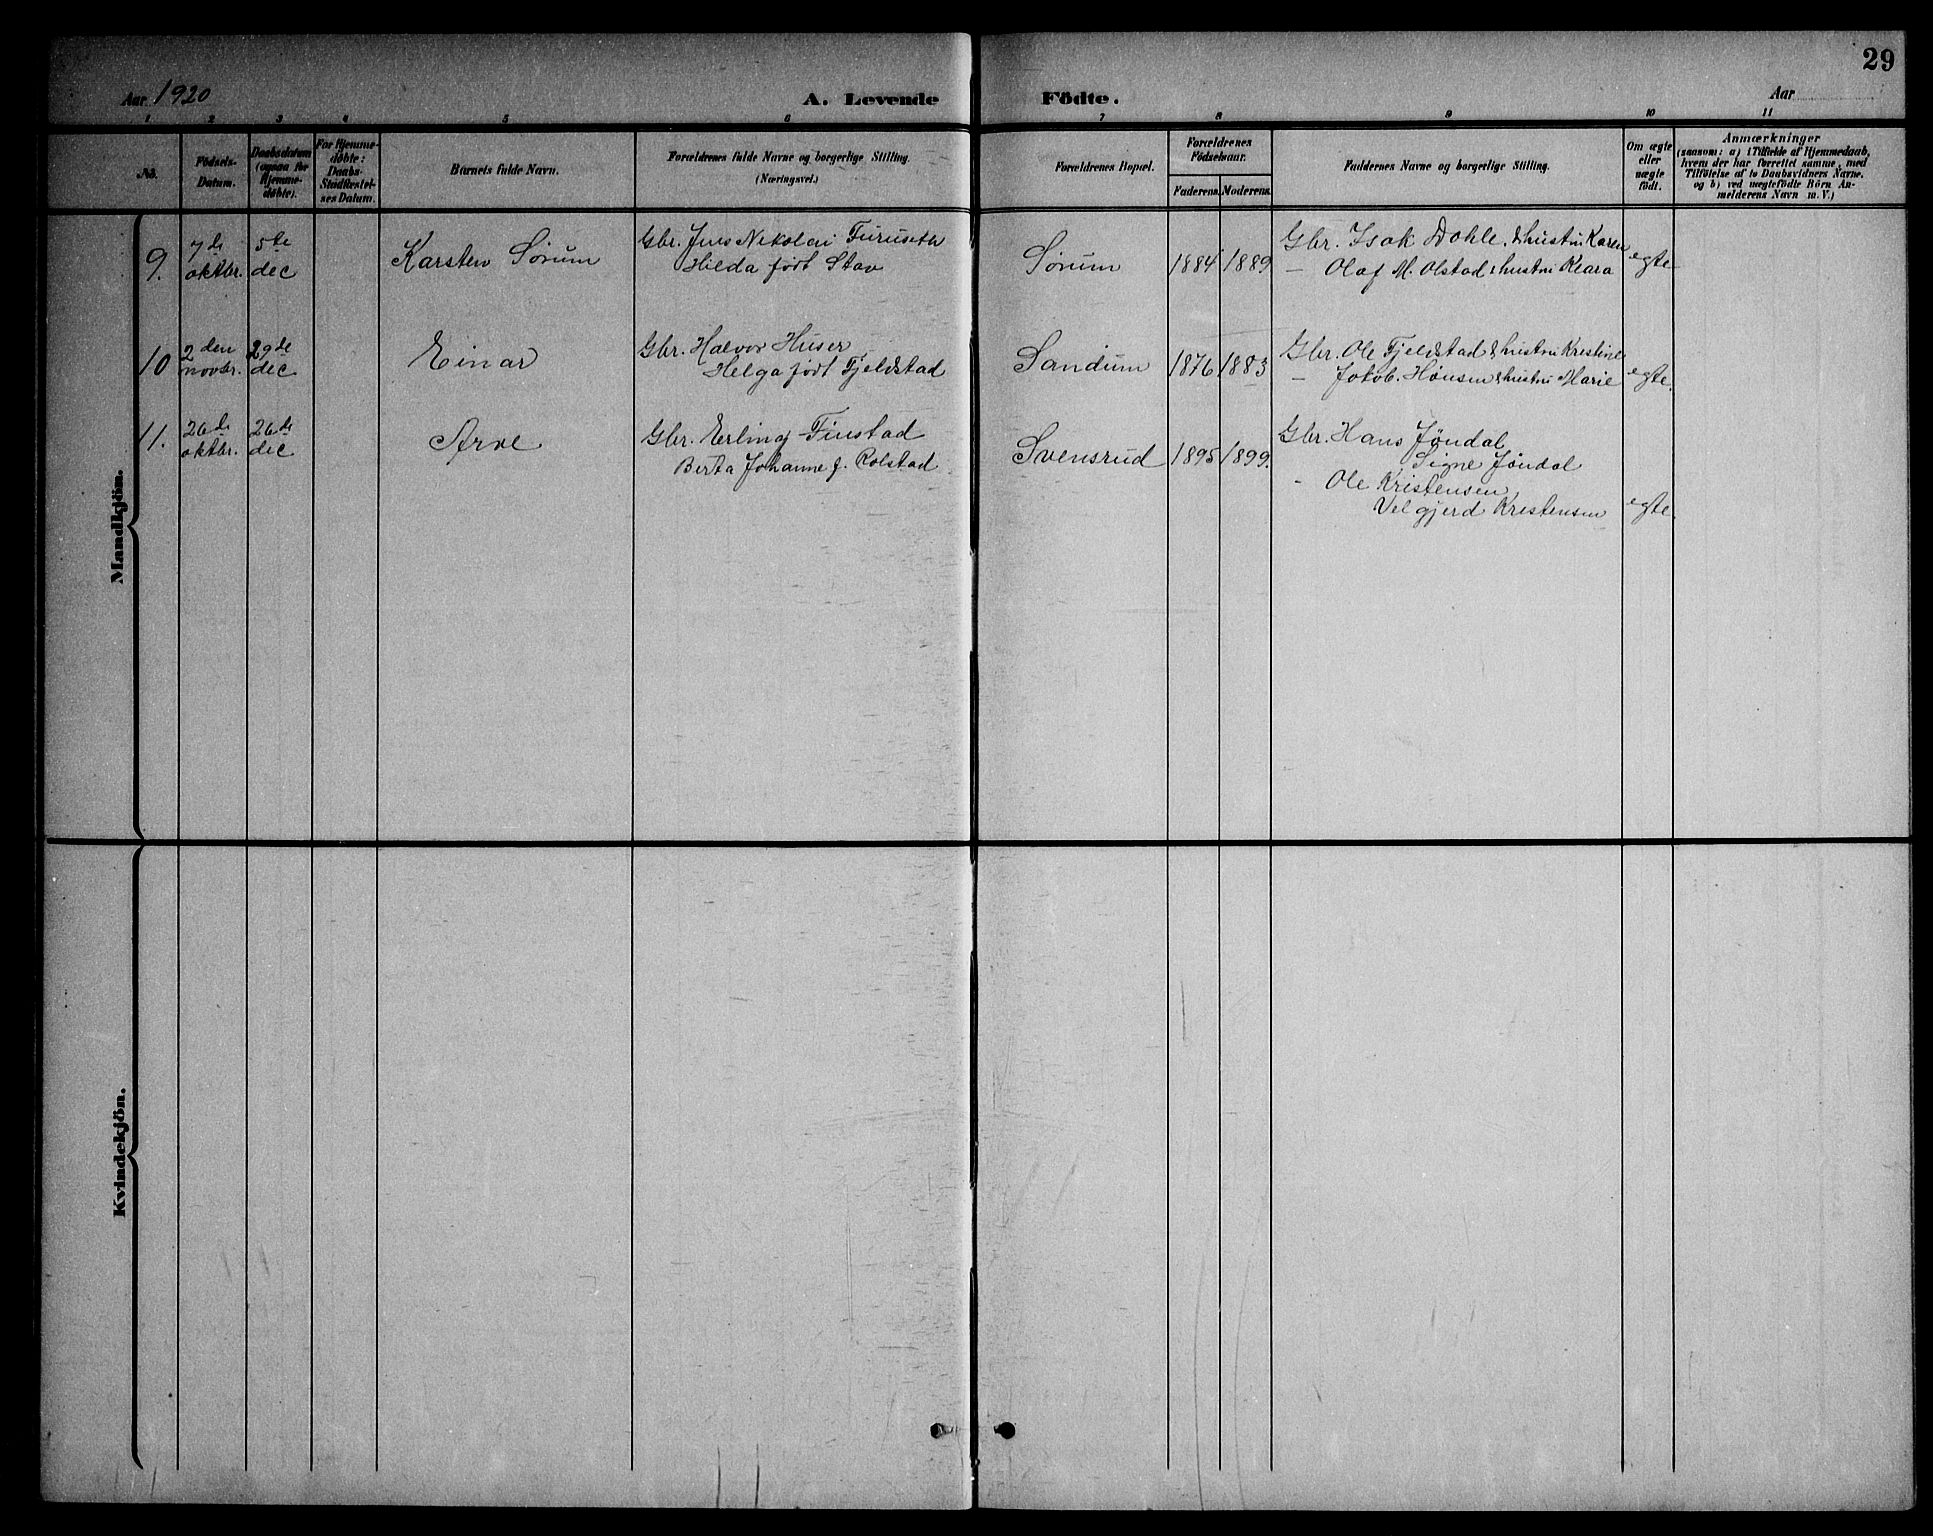 29
Aar 1920 A. Levende Födte. Aar
1 2 3 4 5 6 7 8 9 10 11
No.
Födsels-
Datum.
Daabsdatum
(ogsaa for
Hjemme-
døbte).
For Hjemme-
døbte:
Daabs-
Stadfæstel-
ses Datum.
Barnets fulde Navn.
Forældrenes fulde Navne og borgerlige Stilling.
(Næringsvei.)
Forældrenes Bopæl.
Forældrenes
Fødselsaar.
Faderens. Moderens.
Faddernes Navne og borgerlige Stilling.
Om ægte
eller
uægte
født.
Anmærkninger
(saasom: a) i Tilfælde af Hjemmedaab,
hvem der har forrettet samme, med
Tilføielse af to Daabsvidners Navne,
og b) ved uægtefødte Börn An-
melderens Navn m. V.)
Mandkjön.
9. 7de oktbr. 5te dec Karsten Sørum Gbr. Jens Nikolai Furuseth
Hilda født Stav
Sørum 1884 1889 Gbr. Isak Dahle & hustru Karen
— Olaf M. Olstad & hustru Klara egte
10 2den novbr. 29de dec Einar Gbr. Halvor Huser
Helga født Fjeldstad
Sandum 1876 1883 Gbr. Ole Fjeldstad & hustru Kristine
— Jakob Hønsen & hustru Marie egte.
11. 26de oktbr. 26de dec Arve Gbr. Erling Finstad
Berta Johanne f. Rolstad
Svensrud 1895 1899. Gbr. Hans Jøndal
Signe Jøndal
- Ole Kristensen
Velgjerd Kristensen egte.
Kvindekjön.